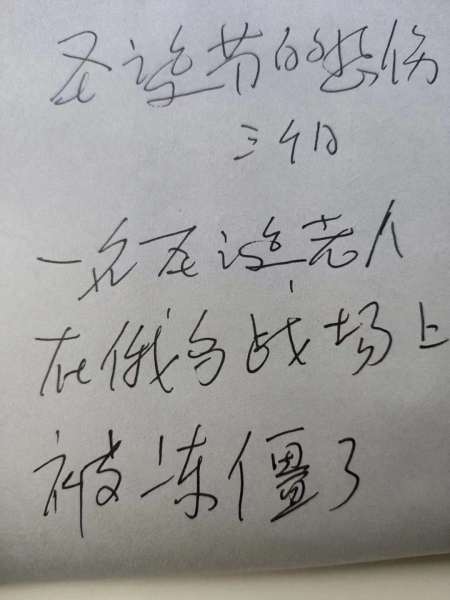 圣诞节的悲伤
三伯
一名圣诞老人
在俄乌战场上
被冻僵了